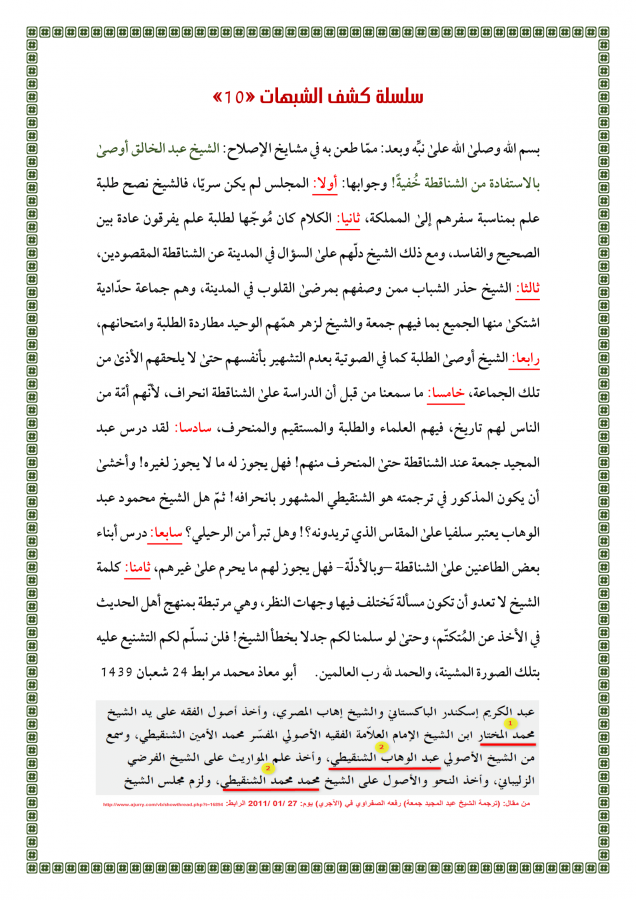 سلسلة كشف الشبهات «10»
بسم الله وصلىٰ الله علىٰ نبِّه وبعد: ممّا طعن به في مشايخ الإصلاح: الشيخ عبد الخالق أوصىٰ
بالاستفادة من الشناقطة خُفيةً! وجوابها: أولا: المجلس لم يكن سريّا، فالشيخ نصح طلبة
علم بمناسبة سفرهم إلىٰ المملكة، ثانيا: الكلام كان مُوجّها لطلبة علم يفرقون عادة بين
الصحيح والفاسد، ومع ذلك الشيخ دلّهم علىٰ السؤال في المدينة عن الشناقطة المقصودين،
ثالثا: الشيخ حذر الشباب ممن وصفهم بمرضىٰ القلوب في المدينة، وهم جماعة حدّادية
اشتكىٰ منها الجميع بما فيهم جمعة والشيخ لزهر همّهم الوحيد مطاردة الطلبة وامتحانهم،
رابعا: الشيخ أوصىٰ الطلبة كما في الصوتية بعدم التشهير بأنفسهم حتىٰ لا يلحقهم الأذىٰ من
تلك الجماعة، خامسا: ما سمعنا من قبل أن الدراسة علىٰ الشناقطة انحراف، لأنّهم أمّة من
الناس لهم تاريخ، فيهم العلماء والطلبة والمستقيم والمنحرف، سادسا: لقد درس عبد
المجيد جمعة عند الشناقطة حتىٰ المنحرف منهم! فهل يجوز له ما لا يجوز لغيره! وأخشىٰ
أن يكون المذكور في ترجمته هو الشنقيطي المشهور بانحرافه! ثمّ هل الشيخ محمود عبد
الوهاب يعتبر سلفيا علىٰ المقاس الذي تريدونه؟! وهل تبرأ من الرحيلي؟ سابعا: درس أبناء
بعض الطاعنين علىٰ الشناقطة –وبالأدلّة- فهل يجوز لهم ما يحرم علىٰ غيرهم، ثامنا: كلمة
الشيخ لا تعدو أن تكون مسألة تَختلف فيها وجهات النظر، وهي مرتبطة بمنهج أهل الحديث
في الأخذ عن المُتكتّم، وحتىٰ لو سلمنا لكم جدلا بخطأ الشيخ! فلن نسلّم لكم التشنيع عليه
بتلك الصورة المشينة، والحمد لله رب العالمين. أبو معاذ محمد مرابط 24 شعبان 1439
عبد الكريم إسكندر الباكستاني والشيخ إيهاب المصري، وأخذ أصول الفقه على يد الشيخ
محمد المختار ابن الشيخ الإمام العلاّمة الفقيه الأصولي المفسّر محمد الأمين الشنقيطي، وسمع
من الشيخ الأصولي عبد الوهاب الشنقيطي، وأخذ علم المواريث على الشيخ الفرضي
الزليباني، وأخذ النحو والأصول على الشيخ محمد محمد الشنقيطي، ولزم مجلس الشيخ
من مقال: (ترجمة الشيخ عبد المجيد جمعة) رفعه الصفراوي في (الآجري) يوم: 27 /01 /2011 الرابط: